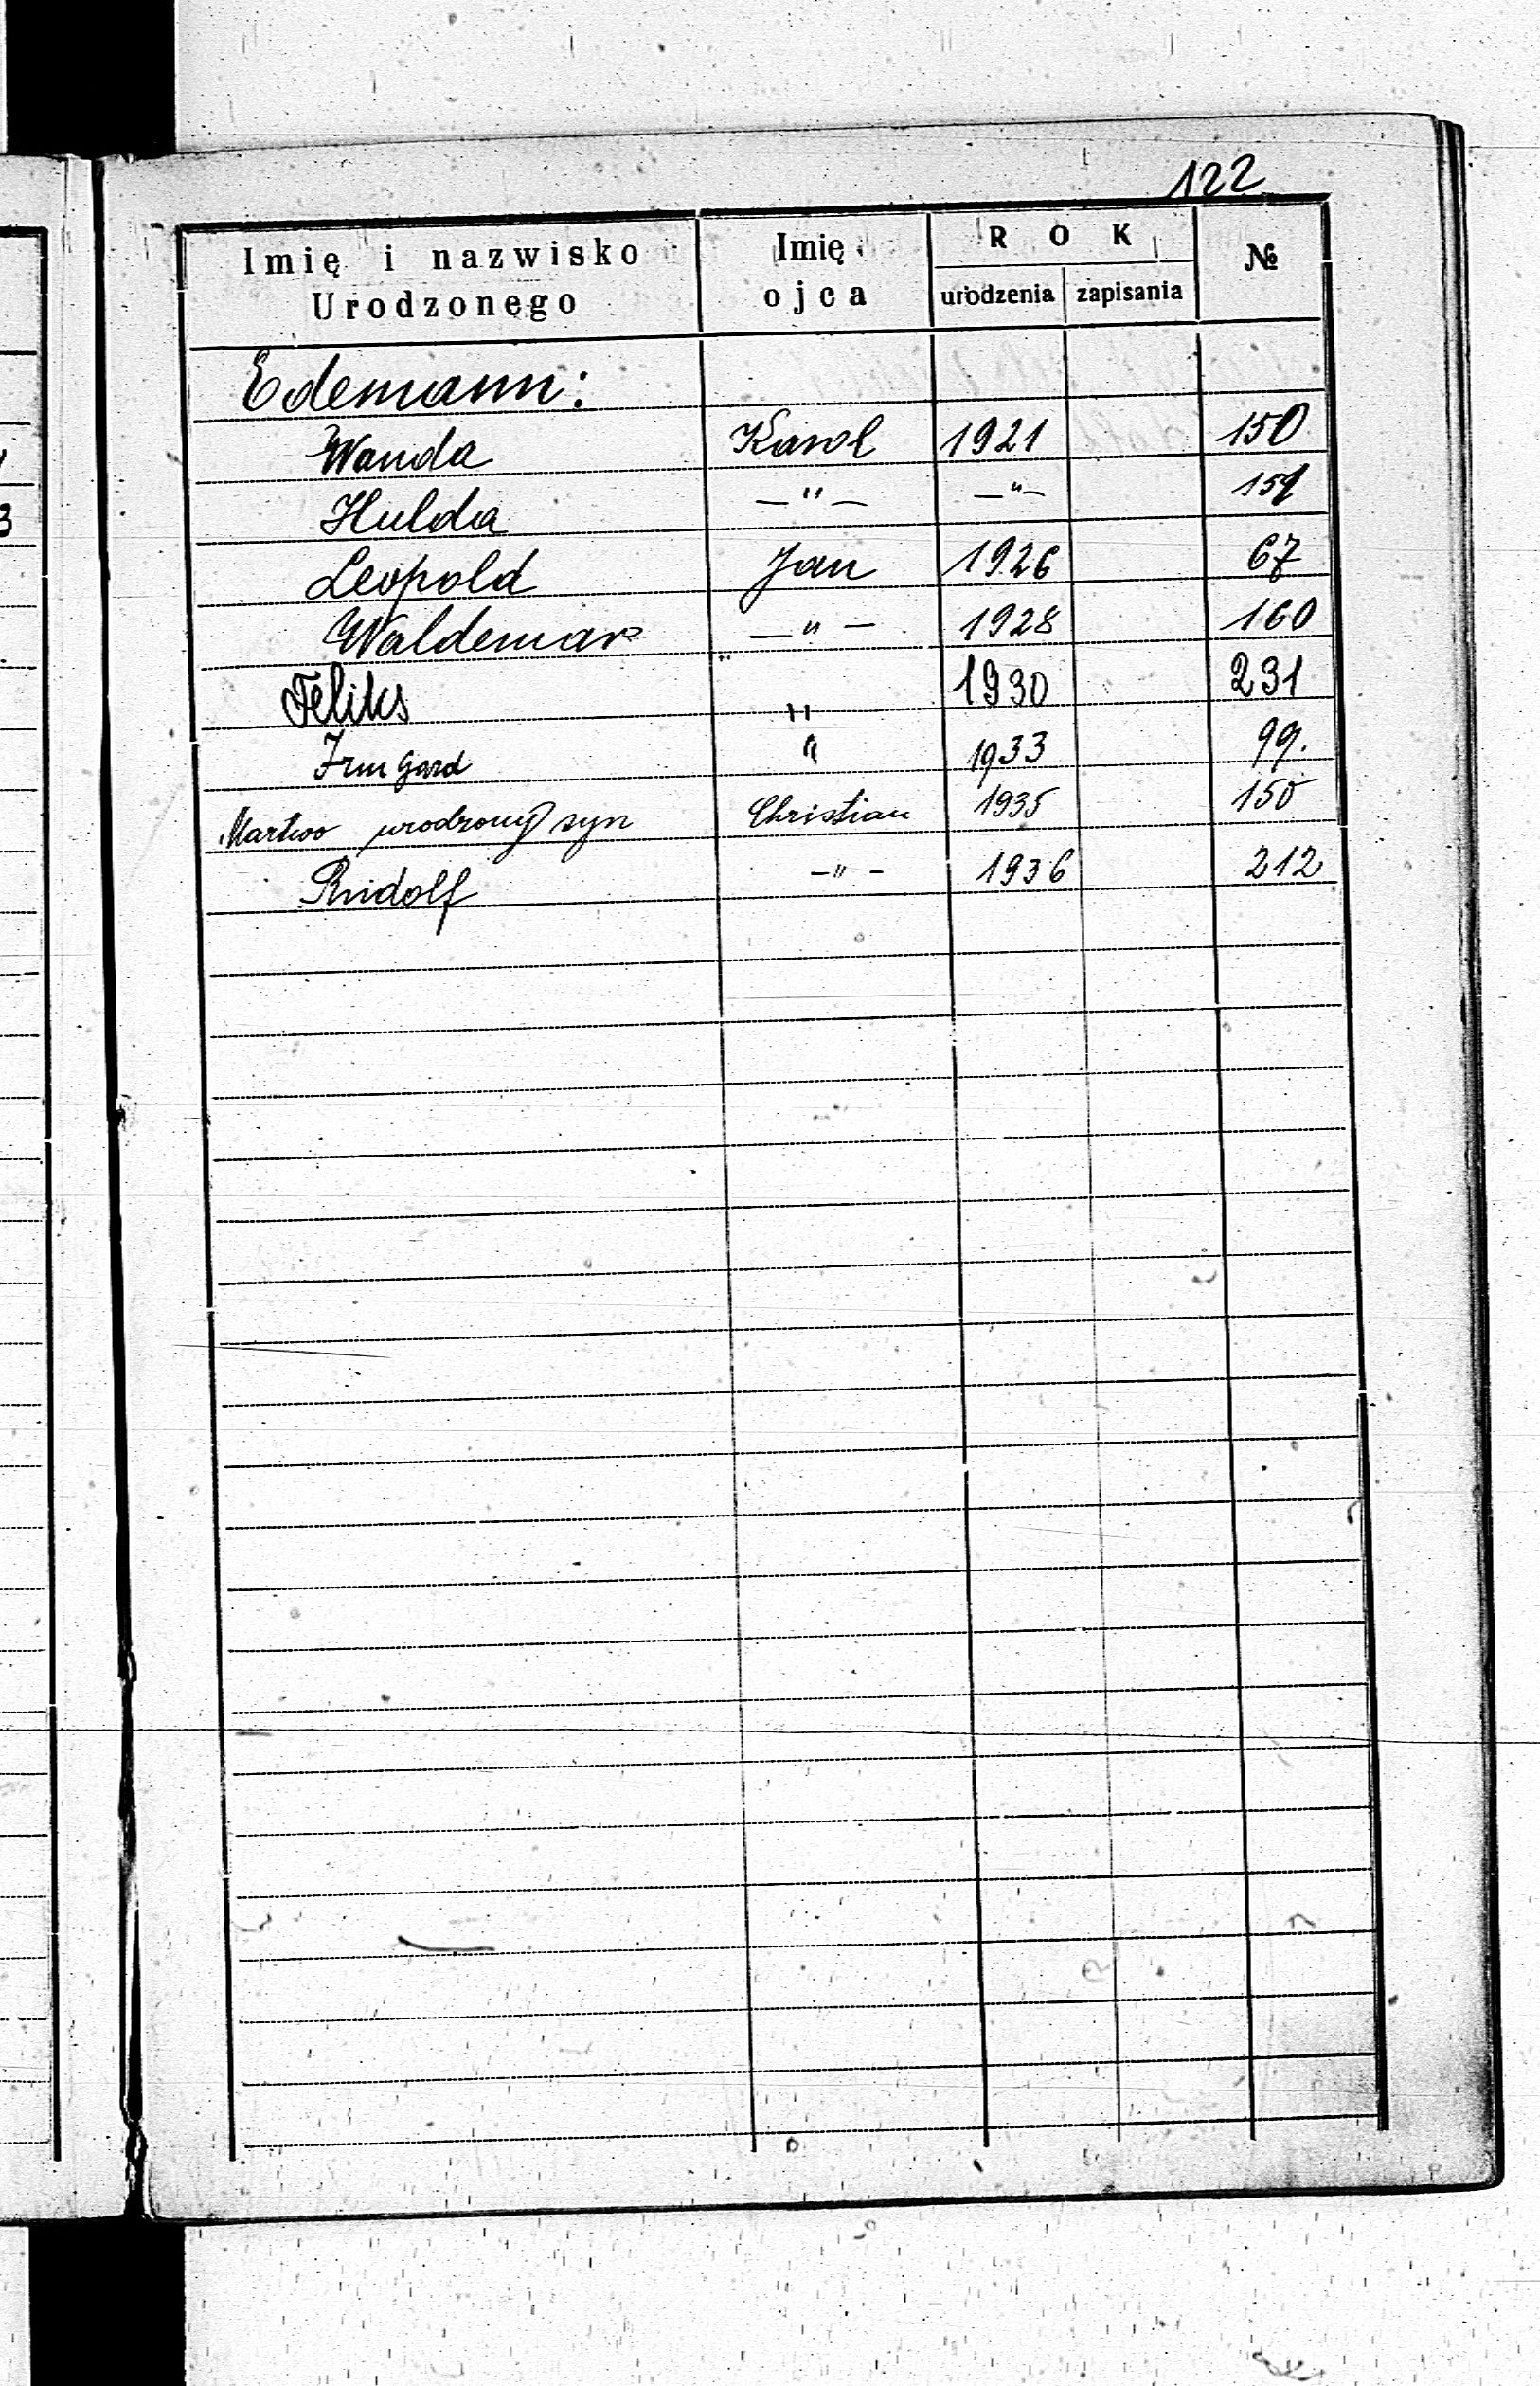 122
Imię i nazwisko Urodzonego Imię ojca ROK urodzenia zapisania №
Edemann:
Wanda Karol 1921 150
Hulda —"— —"— 151
Leopold Jan 1926 67
Waldemar —"— 1928 160
Feliks " 1930 231
Irmgard " 1933 99.
Martwo urodzony syn Christian 1935 150
Rudolf -"- 1936 212
3